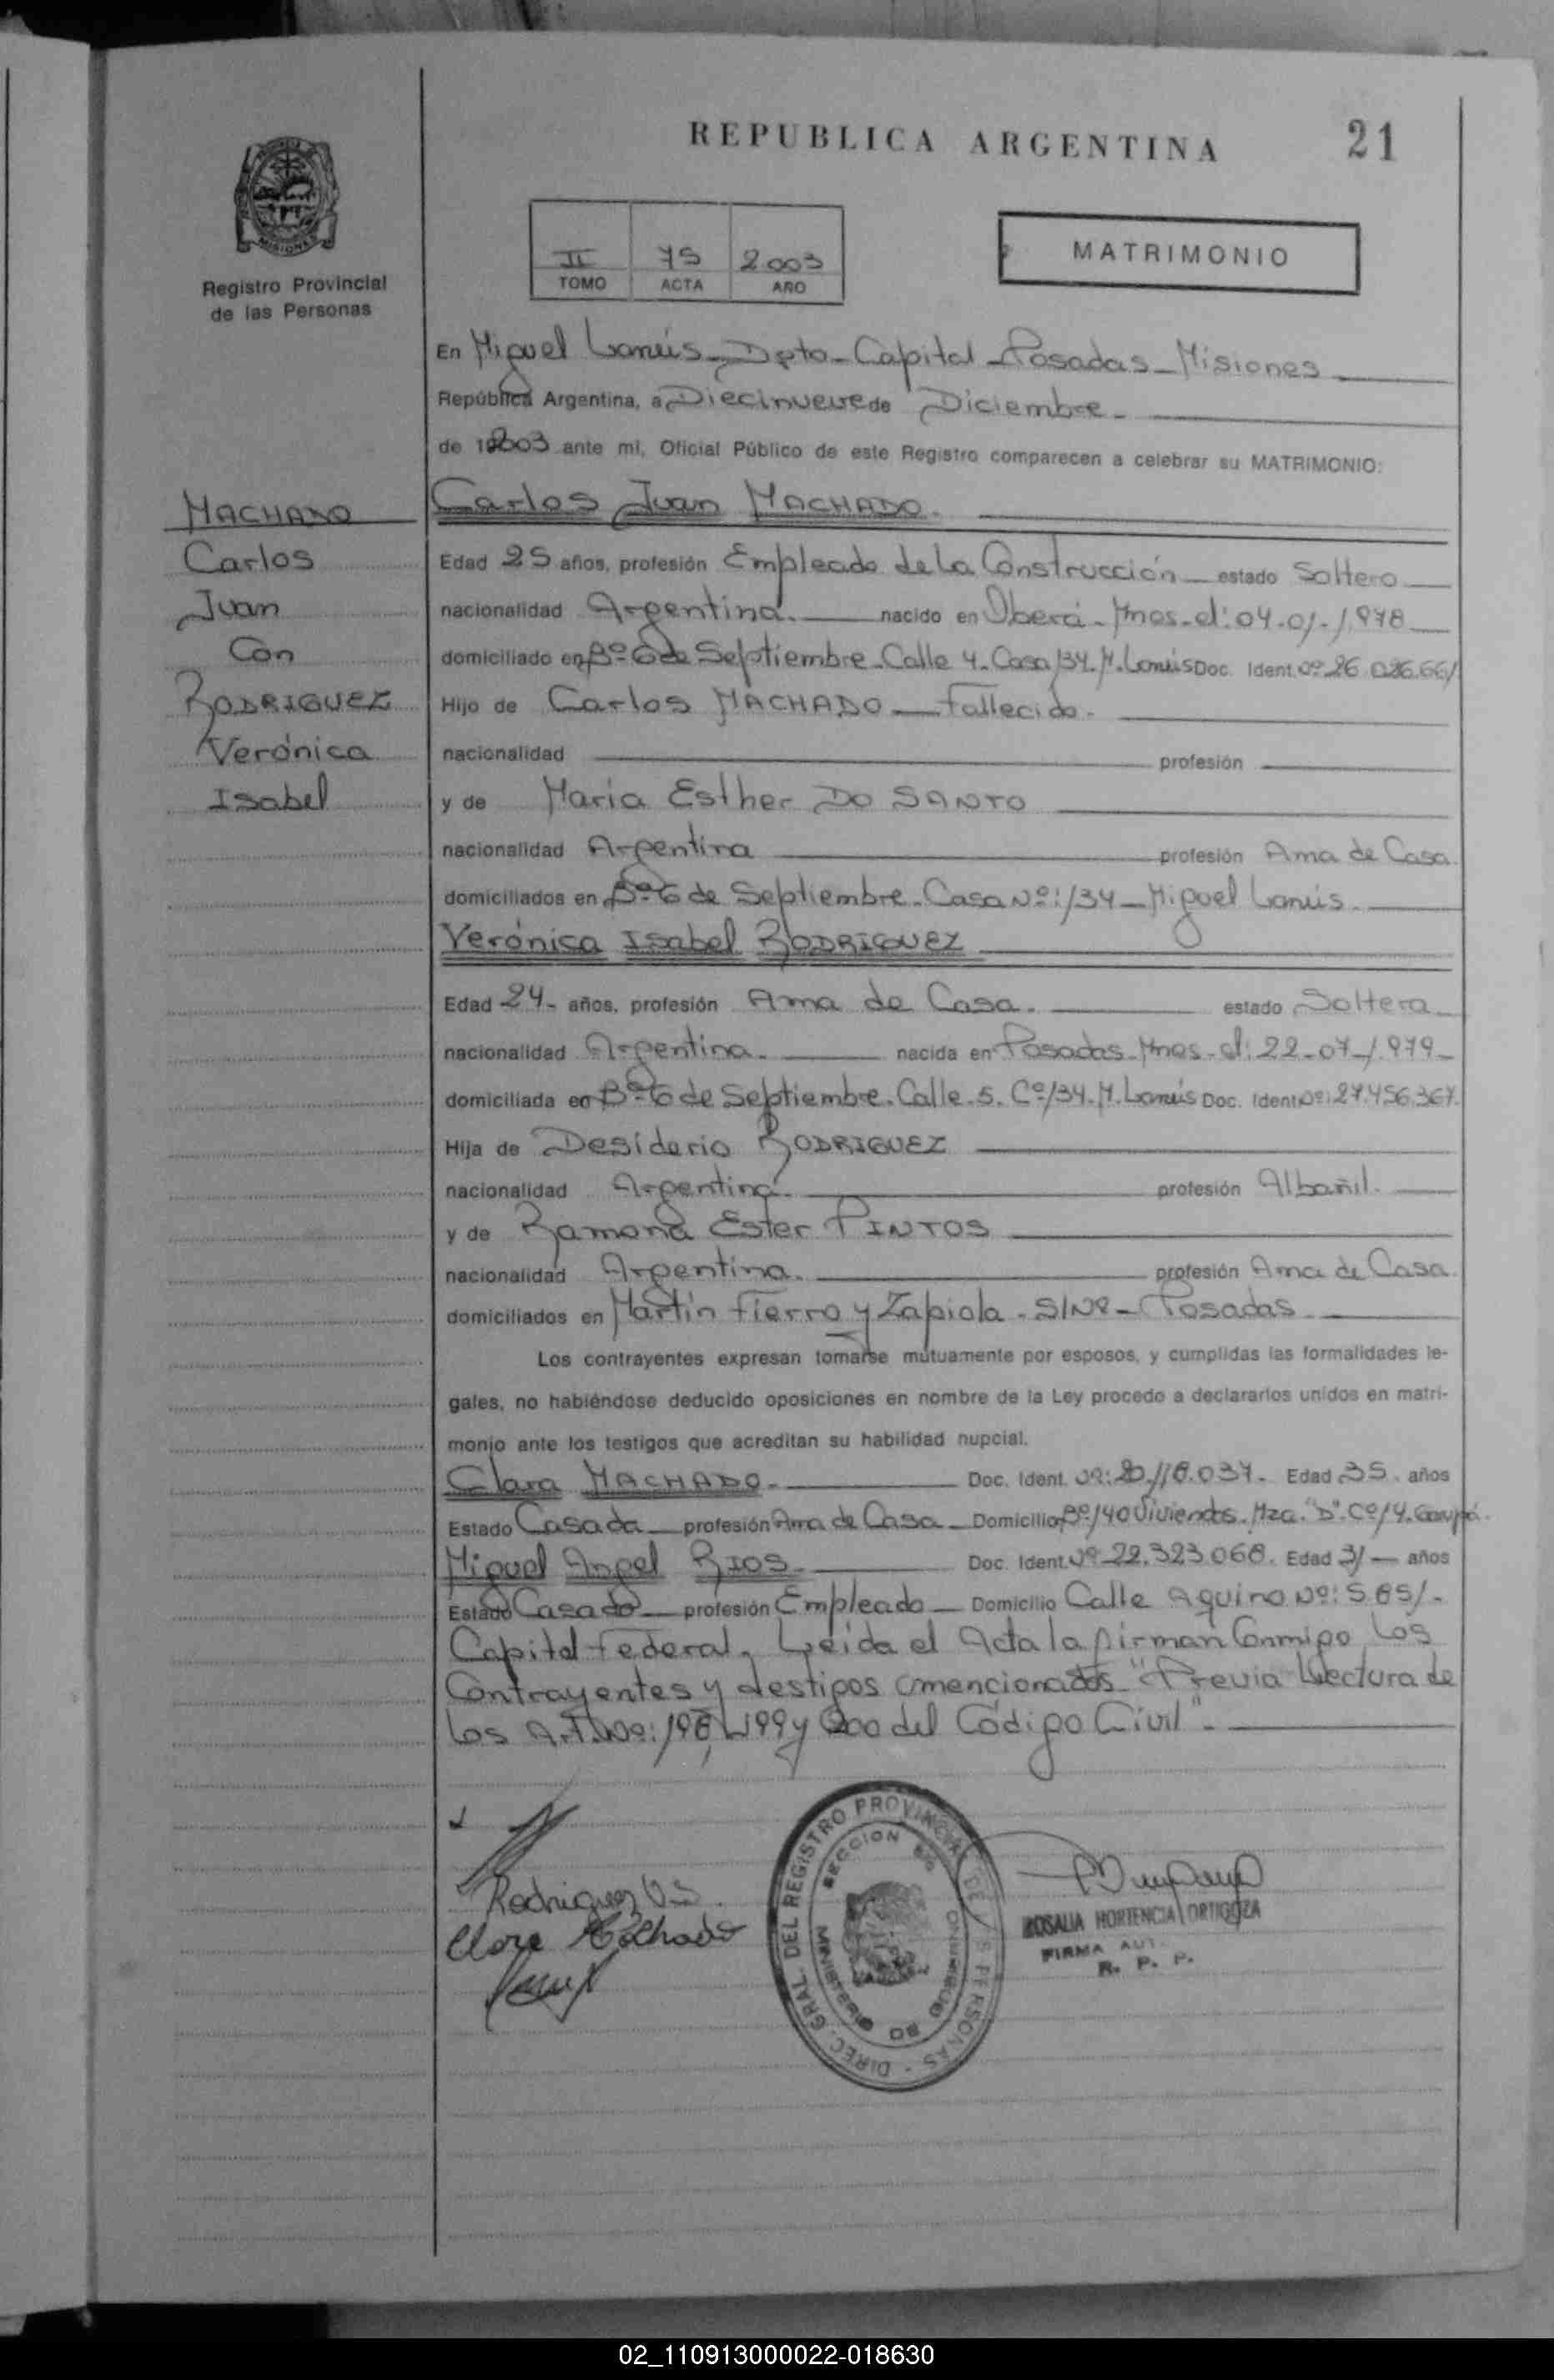 REPUBLICA ARGENTINA
21
MISIONES
Registro Provincial
de las Personas
II 75 2.003
TOMO ACTA AÑO
MATRIMONIO
En Miguel Lanús - Dpto - Capital - Posadas - Misiones
República Argentina, a Diecinueve de Diciembre -
de 2003 ante mi, Oficial Público de este Registro comparecen a celebrar su MATRIMONIO:
MACHADO
Carlos
Juan
Con
RODRIGUEZ
Verónica
Isabel
Carlos Juan MACHADO.
Edad 25 años, profesión Empleado de La Construcción estado Soltero
nacionalidad Argentina. nacido en Oberá - Mnes - el: 04-01-1.978
domiciliado en Bº 6 de Septiembre - Calle 4 - Casa 134 - M. Lanús Doc. Ident. Nº 26.026.661
Hijo de Carlos MACHADO - Fallecido.
nacionalidad profesión
y de María Esther DO SANTO
nacionalidad Argentina profesión Ama de Casa.
domiciliados en Bº 6 de Septiembre - Casa Nº: 134 - Miguel Lanús.
Verónica Isabel RODRIGUEZ
Edad 24- años, profesión Ama de Casa. estado Soltera
nacionalidad Argentina. nacida en Posadas - Mnes - el: 22-07-1.979-
domiciliada en Bº 6 de Septiembre - Calle 5. Cº 134. M. Lanús Doc. Ident Nº: 27.456.367.
Hija de Desiderio RODRIGUEZ
nacionalidad Argentina. profesión Albañil.
y de Ramona Ester PINTOS
nacionalidad Argentina. profesión Ama de Casa.
domiciliados en Martín Fierro y Zapiola - S/Nº - Posadas
Los contrayentes expresan tomarse mutuamente por esposos, y cumplidas las formalidades le-
gales, no habiéndose deducido oposiciones en nombre de la Ley procedo a declararlos unidos en matri-
monio ante los testigos que acreditan su habilidad nupcial.
Clara MACHADO. Doc. Ident. Nº: 20.118.037. Edad 35. años
Estado Casada profesión Ama de Casa - Domicilio Bº 140 Viviendas. Mza. "D". Cº 14. Garupá.
Miguel Angel RIOS. Doc. Ident. Nº 22.323.068. Edad 31 - años
Estado Casado profesión Empleado - Domicilio Calle Aquino Nº: 5.851.-
Capital Federal. Leída el Acta la firman Conmigo Los
Contrayentes y testigos mencionados "Previa Lectura de
Los Art. Nº: 198, 199 y 200 del Código Civil".
Rodriguez V.I.
Clara Machado
DIREC. GRAL. DEL REGISTRO PROVINCIAL DE LAS PERSONAS
MINISTERIO DE GOBIERNO
ROSALIA HORTENCIA ORTIGOZA
FIRMA AUT.
R. P. P.
02_110913000022-018630